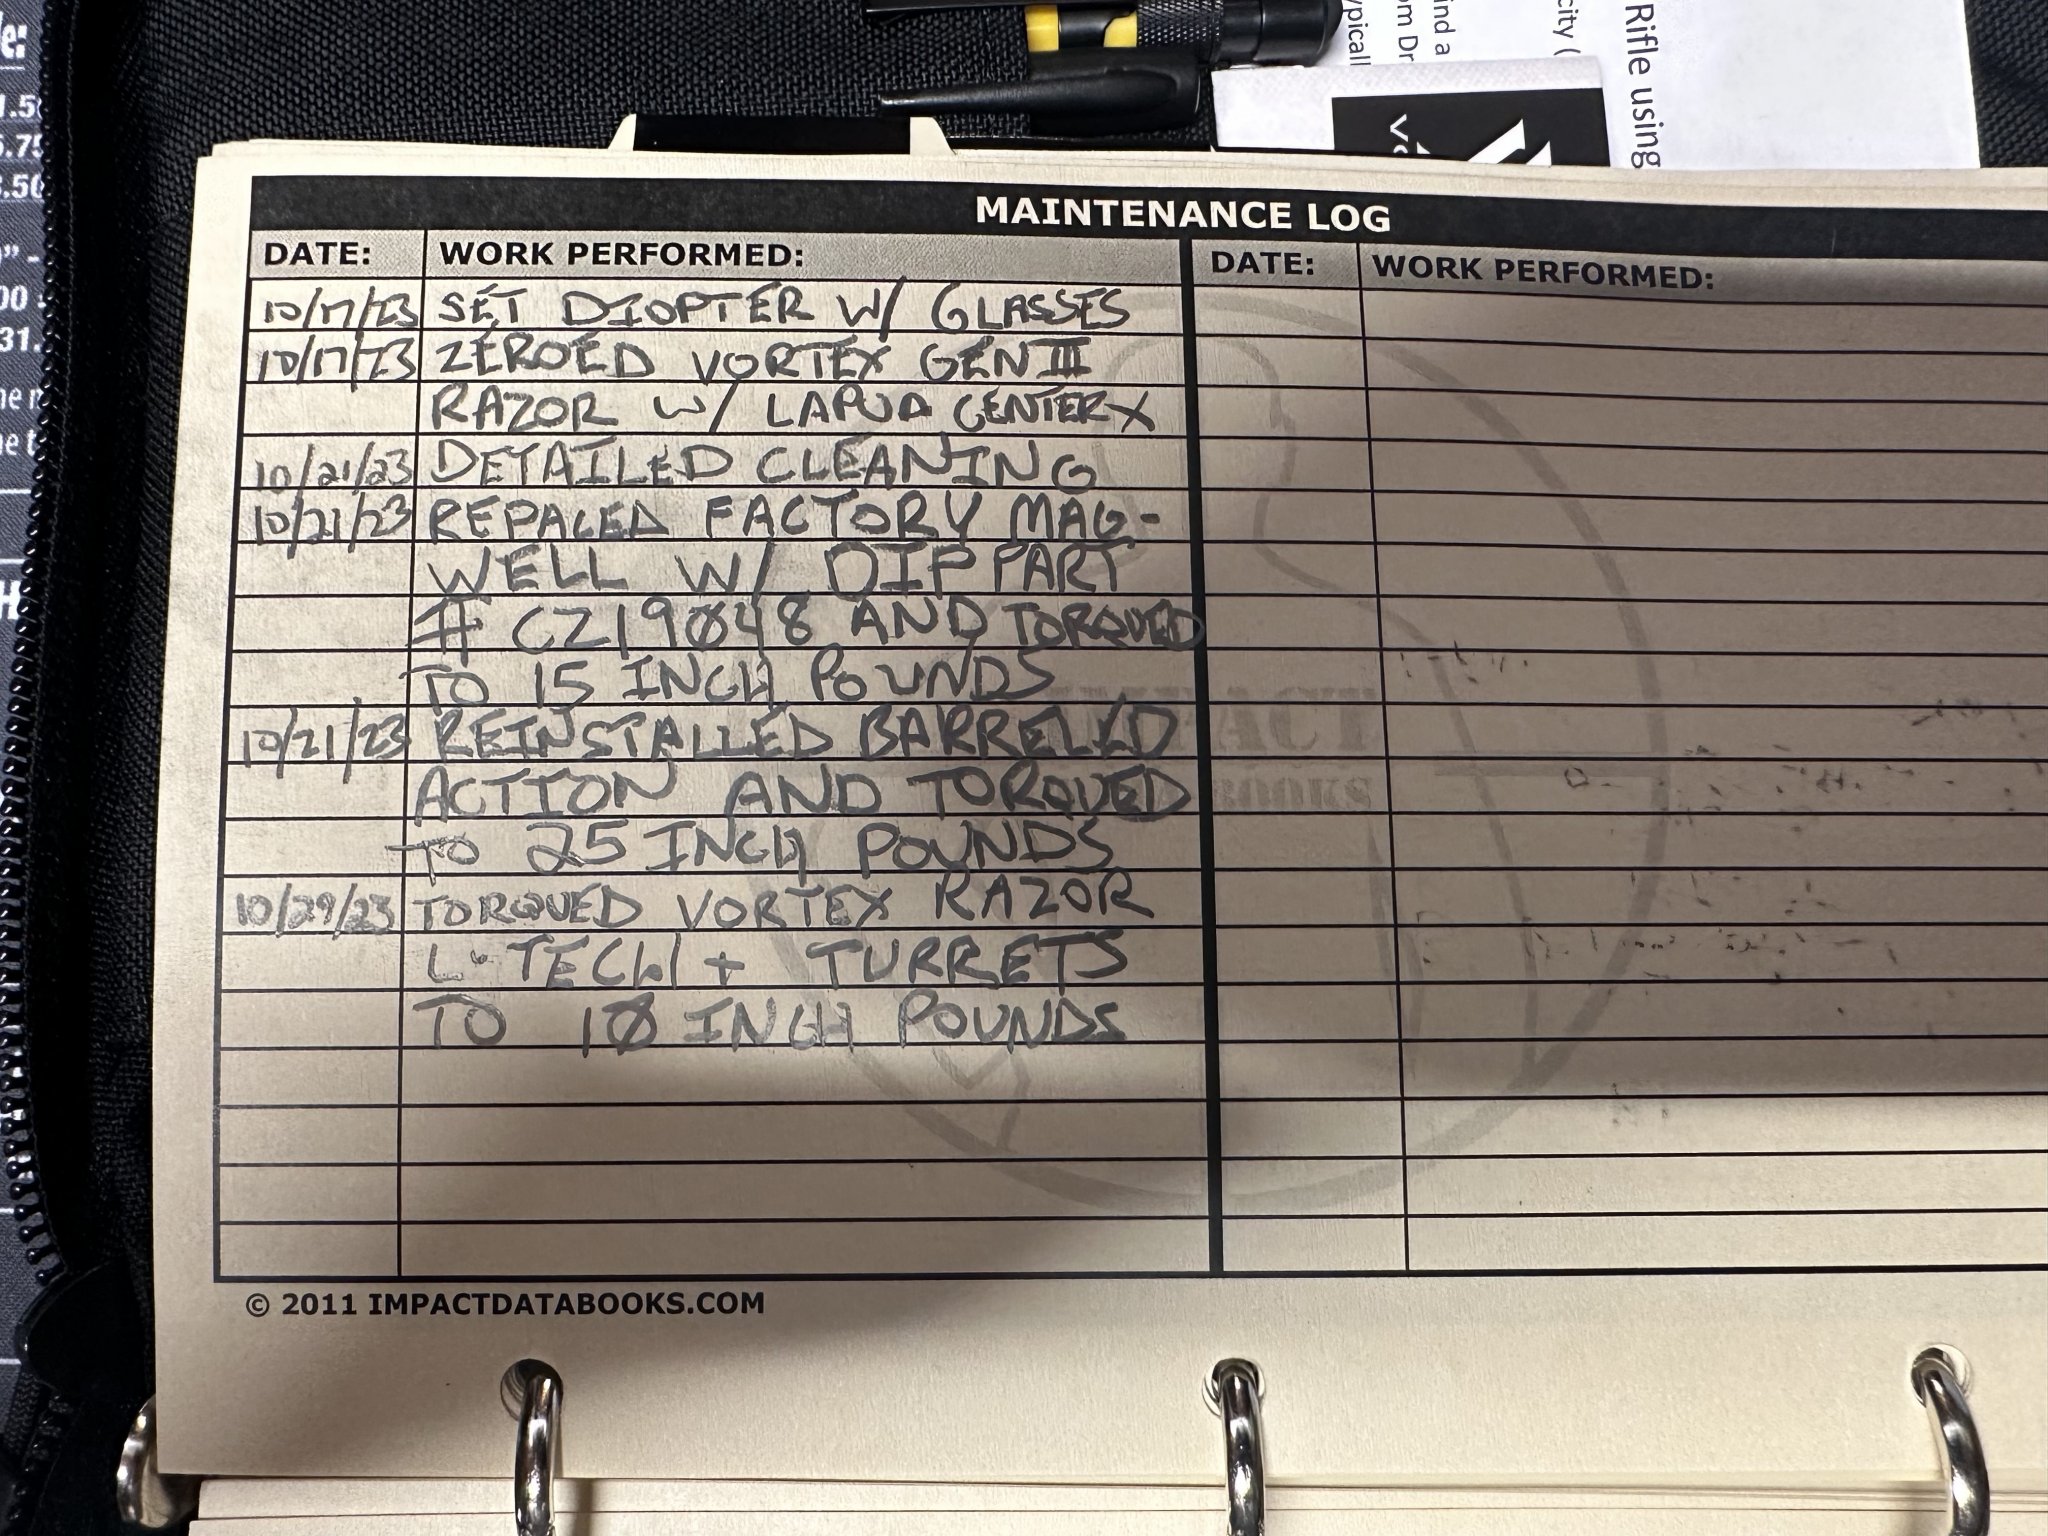 Rifle using
city (
ind a
om Dr
ypicall
MAINTENANCE LOG
DATE: WORK PERFORMED: DATE: WORK PERFORMED:
10/17/23 SET DIOPTER W/ GLASSES
10/17/23 ZEROED VORTEX GEN III
RAZOR W/ LAPUA CENTER X
10/21/23 DETAILED CLEANING
10/21/23 REPACED FACTORY MAG-
WELL W/ DIP PART
# CZ19048 AND TORQUED
TO 15 INCH POUNDS
10/21/23 REINSTALLED BARRELED
ACTION AND TORQUED
TO 25 INCH POUNDS
10/29/23 TORQUED VORTEX RAZOR
L-TECH + TURRETS
TO 10 INCH POUNDS
IMPACT
BOOKS
© 2011 IMPACTDATABOOKS.COM